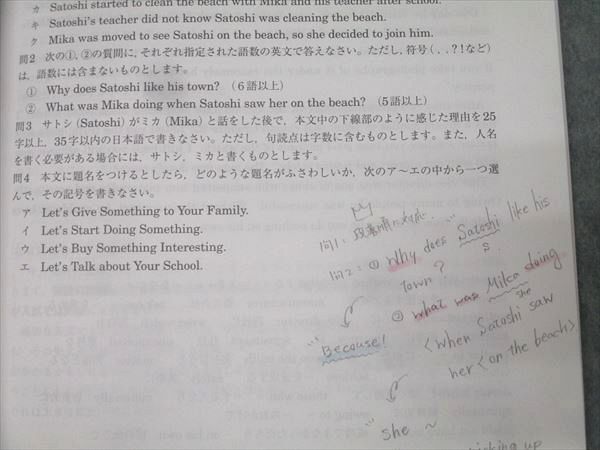 カ Satoshi started to clean the beach with Mika and his teacher after school.
キ Satoshi's teacher did not know Satoshi was cleaning the beach.
ク Mika was moved to see Satoshi on the beach, so she decided to join him.
問2 次の①, ②の質問に, それぞれ指定された語数の英文で答えなさい。ただし, 符号 ( , . ? ! など)
は, 語数には含まないものとします。
① Why does Satoshi like his town? (6語以上)
② What was Mika doing when Satoshi saw her on the beach? (5語以上)
問3 サトシ (Satoshi) がミカ (Mika) と話をした後で, 本文中の下線部のように感じた理由を25
字以上, 35字以内の日本語で書きなさい。ただし, 句読点は字数に含むものとします。また, 人名
を書く必要がある場合には, サトシ, ミカと書くものとします。
問4 本文に題名をつけるとしたら, どのような題名がふさわしいか, 次のア〜エの中から一つ選
んで, その記号を書きなさい。
ア Let's Give Something to Your Family.
イ Let's Start Doing Something.
ウ Let's Buy Something Interesting.
エ Let's Talk about Your School.
問1:
問2: ① Why does Satoshi like his
S.
town?
② what was Mika doing
she
Because!
<when Satoshi saw
her <on the beach>
she ~
up